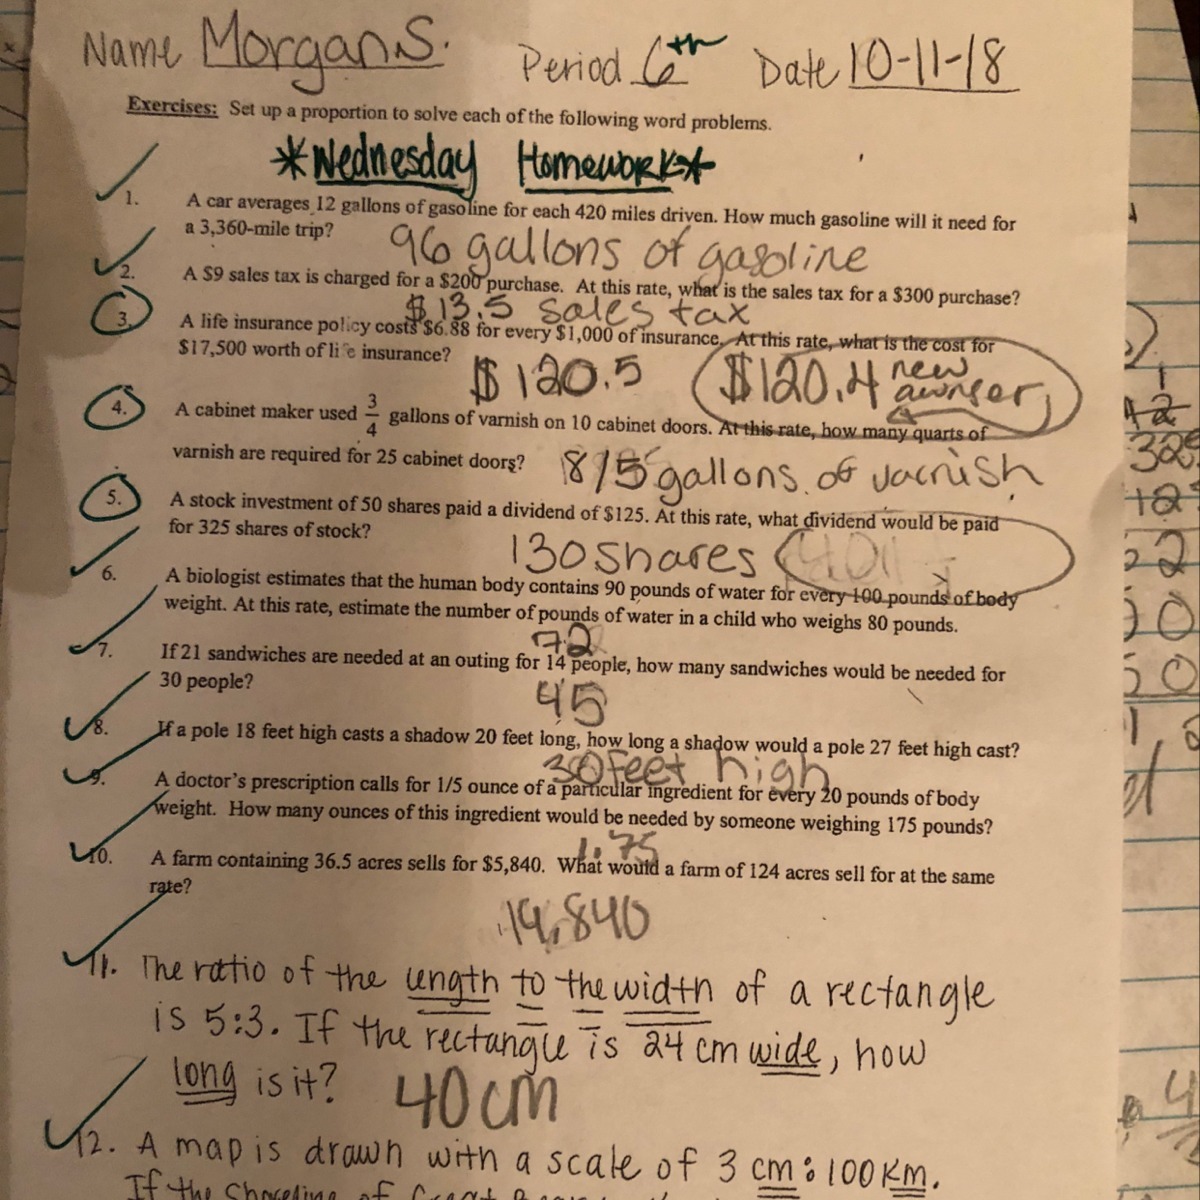 Name Morgan S. Period 6th Date 10-11-18
Exercises: Set up a proportion to solve each of the following word problems.
*Wednesday Homework*
1. A car averages 12 gallons of gasoline for each 420 miles driven. How much gasoline will it need for
a 3,360-mile trip? 96 gallons of gasoline
2. A $9 sales tax is charged for a $200 purchase. At this rate, what is the sales tax for a $300 purchase?
$13.5 sales tax
3. A life insurance policy costs $6.88 for every $1,000 of insurance. At this rate, what is the cost for
$17,500 worth of life insurance? $120.5 $120.4 new
awnser
4. A cabinet maker used 3/4 gallons of varnish on 10 cabinet doors. At this rate, how many quarts of
varnish are required for 25 cabinet doors? 8/5 gallons of varnish
5. A stock investment of 50 shares paid a dividend of $125. At this rate, what dividend would be paid
for 325 shares of stock? 130 shares
6. A biologist estimates that the human body contains 90 pounds of water for every 100 pounds of body
weight. At this rate, estimate the number of pounds of water in a child who weighs 80 pounds.
72
7. If 21 sandwiches are needed at an outing for 14 people, how many sandwiches would be needed for
30 people? 45
8. If a pole 18 feet high casts a shadow 20 feet long, how long a shadow would a pole 27 feet high cast?
30 feet high
9. A doctor's prescription calls for 1/5 ounce of a particular ingredient for every 20 pounds of body
weight. How many ounces of this ingredient would be needed by someone weighing 175 pounds?
1.75
10. A farm containing 36.5 acres sells for $5,840. What would a farm of 124 acres sell for at the same
rate?
19,840
11. The ratio of the length to the width of a rectangle
is 5:3. If the rectangle is 24 cm wide, how
long is it? 40 cm
12. A map is drawn with a scale of 3 cm : 100 km.
If the shoreline of Great